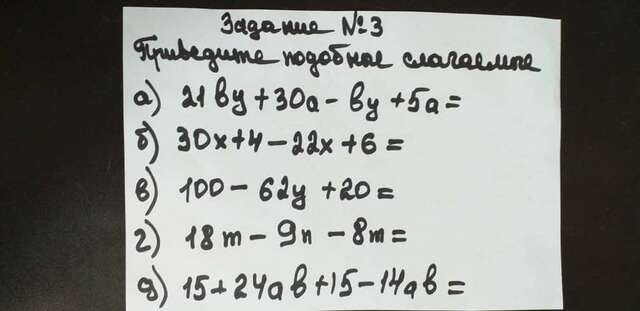 Задание №3
Приведите подобные слагаемые
а) 21by+30a-by+5a=
б) 30x+4-22x+6=
в) 100-62y+20=
г) 18m-9n-8m=
д) 15+24ab+15-14ab=